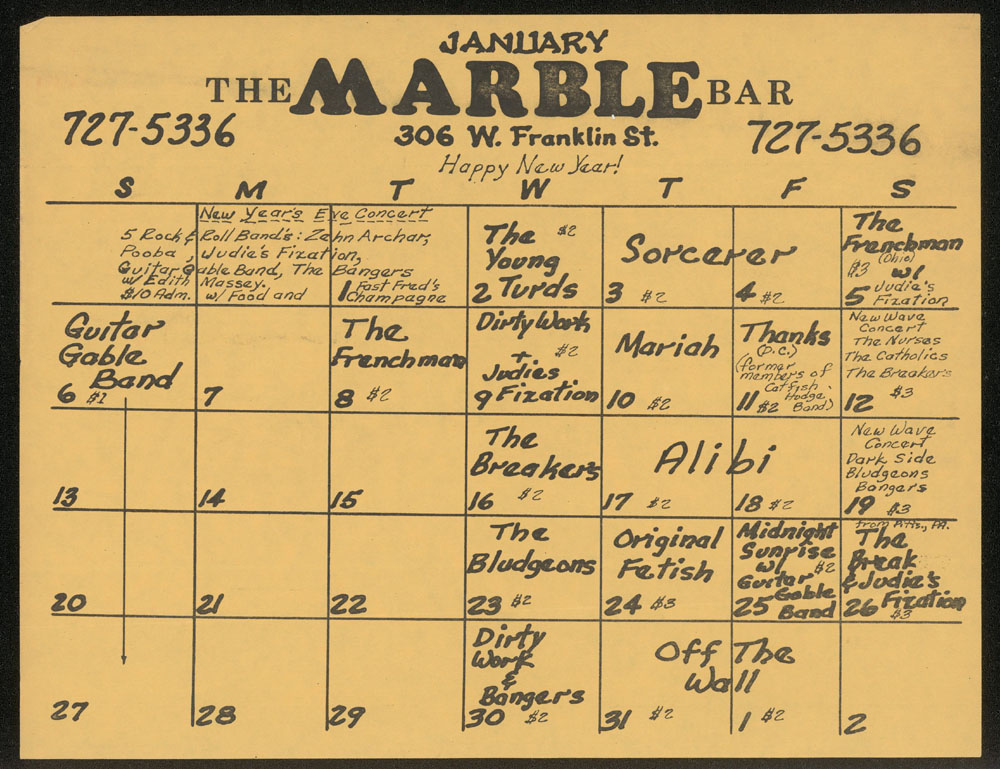 JANUARY
THE MARBLE BAR
727-5336 306 W. Franklin St. 727-5336
Happy New Year!
S M T W T F S
New Year's Eve Concert
5 Rock & Roll Band's: Zehn Archar,
Pooba, Judie's Fixation,
Guitar Gable Band, The Bangers
w/ Edith Massey.
$10 Adm. w/ Food and
Fast Fred's
Champagne
1
The $2
Young
2 Turds
Sorcerer
3 $2
4 $2
The
Frenchman
(Ohio)
$3 w/
Judie's
5 Fixation
Guitar
Gable
Band
6 $2
7
The
Frenchman
8 $2
Dirty Work
+ $2
Judies
9 Fixation
Mariah
10 $2
Thanks
(D.C.)
(former
members of
Catfish
Hodge
Band)
11 $2
New Wave
Concert
The Nurses
The Catholics
The Breakers
12 $3
13
14
15
The
Breakers
16 $2
Alibi
17 $2
18 $2
New Wave
Concert
Dark Side
Bludgeons
Bangers
19 $3
20
21
22
The
Bludgeons
23 $2
Original
Fetish
24 $3
Midnight
Sunrise
w/ $2
Guitar
Gable
25 Band
from Pitts., PA.
The
Break
& Judie's
26 Fixation
$3
27
28
29
Dirty
Work
&
Banger's
30 $2
Off The
Wall
31 $2
1 $2
2